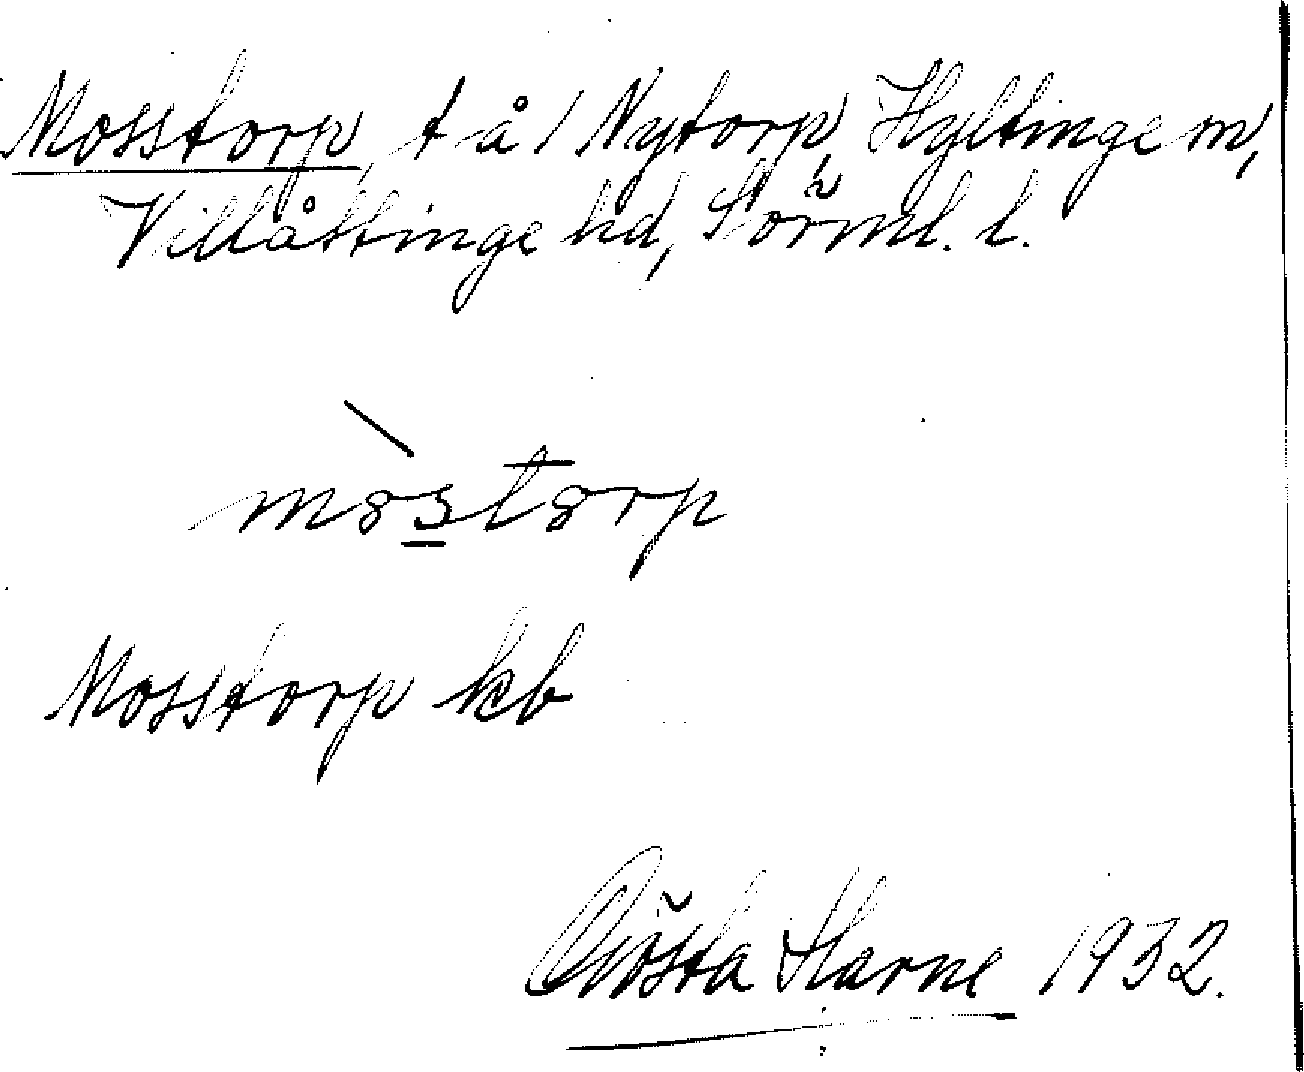 Mosstorp, t å 1 Nytorp, Hyltinge sn,
Villåttinge hd, Sörml. l.
mo̊storp
Mosstorp kb
Gösta Harne 1932.